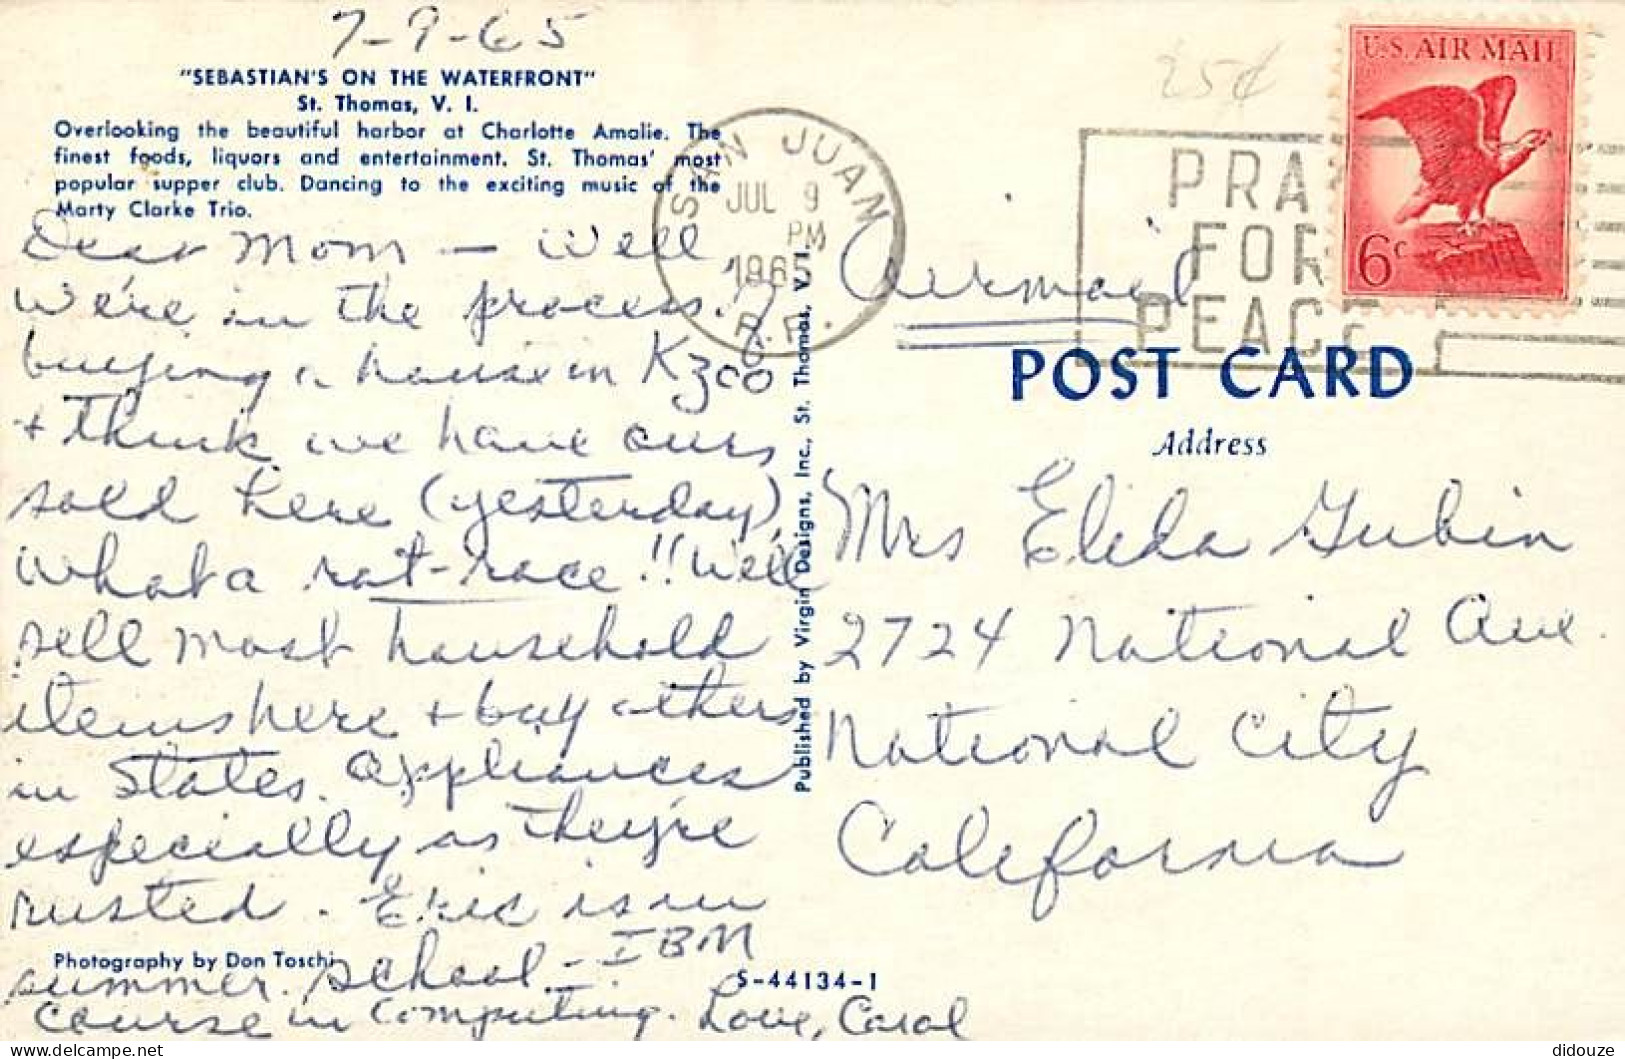 7-9-65
"SEBASTIAN'S ON THE WATERFRONT"
St. Thomas, V. I.
Overlooking the beautiful harbor at Charlotte Amalie. The
finest foods, liquors and entertainment. St. Thomas' most
popular supper club. Dancing to the exciting music of the
Marty Clarke Trio.
Dear Mom — Well
we're in the process of
buying a house in Kzoo
+ think we have ours
sold here (yesterday),
what a rat-race!! We'll
sell most household
items here + buy others
in States. Appliances
especially as they're
rusted. Eric is in
summer school - IBM
course in Computing. Love, Carol
Photography by Don Toschi
S-44134-1
Published by Virgin Designs, Inc., St. Thomas, V. I.
SAN JUAN
JUL 9
PM
1965
P.R.
25¢
PRAY
FOR
PEACE
U.S. AIR MAIL
6c
Airmail
POST CARD
Address
Mrs Elida Gubin
2724 National Ave.
National City
California
didouze